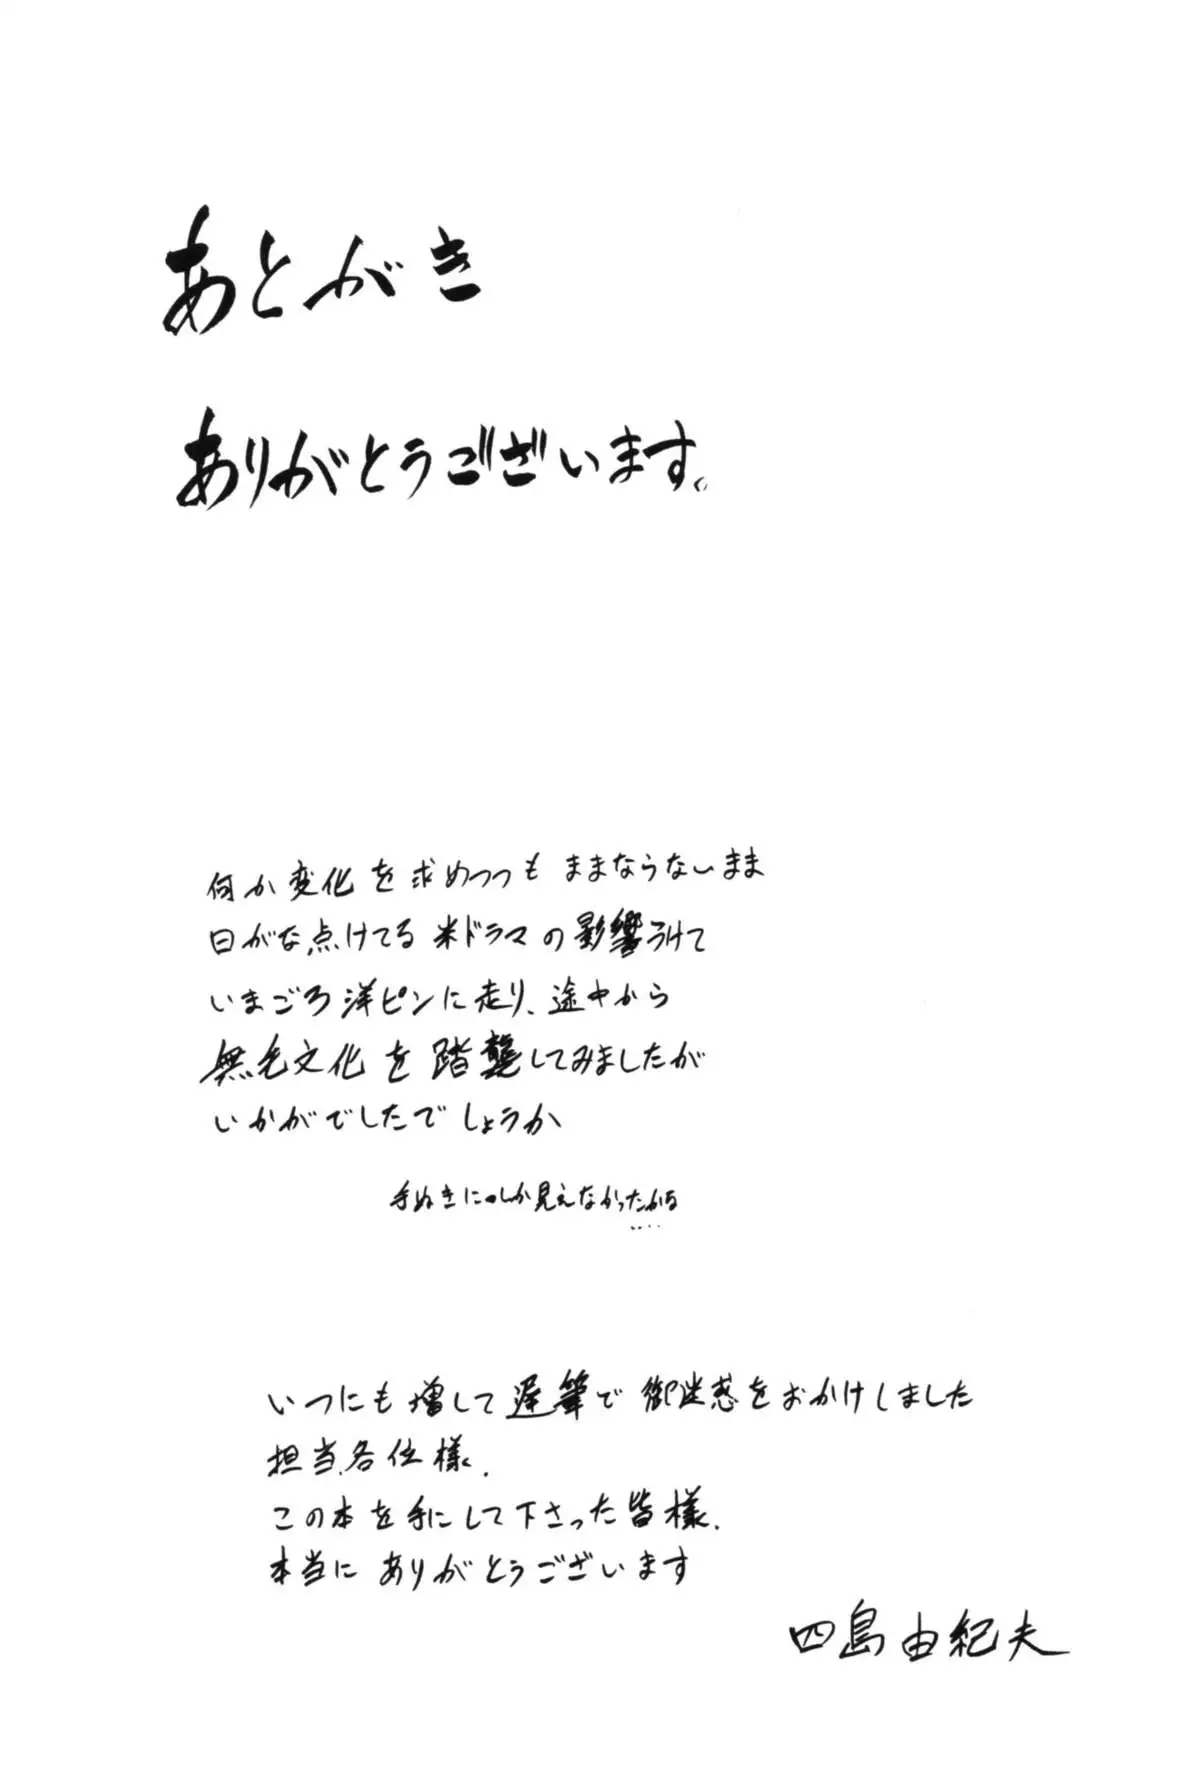 あとがき
ありがとうございます。
何か変化を求めつつもままならないまま
日がな点けてる米ドラマの影響うけて
いまごろ洋ピンに走り、途中から
無毛文化を踏襲してみましたが
いかがでしたでしょうか
手ぬきにしか見えなかったかな
....
いつにも増して遅筆で御迷惑をおかけしました
担当各位様、
この本を手にして下さった皆様、
本当にありがとうございます
四島由紀夫